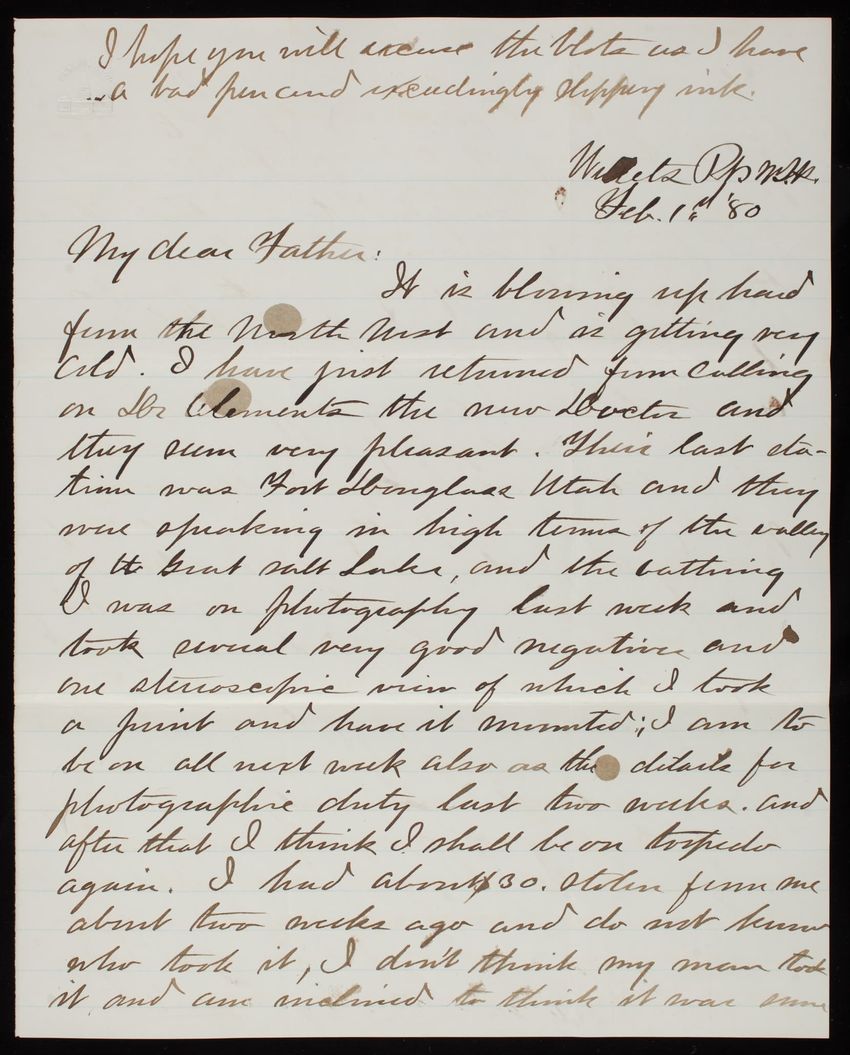 I hope you will excuse the blots as I have
a bad pen and exceedingly slippery ink.
Willets Pt N.Y.H.
Feb. 1st '80
My dear Father:
It is blowing up hard
from the North West and is getting very
cold. I have just returned from calling
on Dr Clements the new Doctor and
they seem very pleasant. Their last sta-
tion was Fort Douglass Utah and they
were speaking in high terms of the valley
of the Great Salt Lake, and the bathing
I was on photography last week and
took several very good negatives and
one stereoscopic view of which I took
a print and have it mounted; I am to
be on all next week also as the details for
photographic duty last two weeks. and
after that I think I shall be on torpedo
again. I had about $30. stolen from me
about two weeks ago and do not know
who took it, I don't think my man took
it and am inclined to think it was some